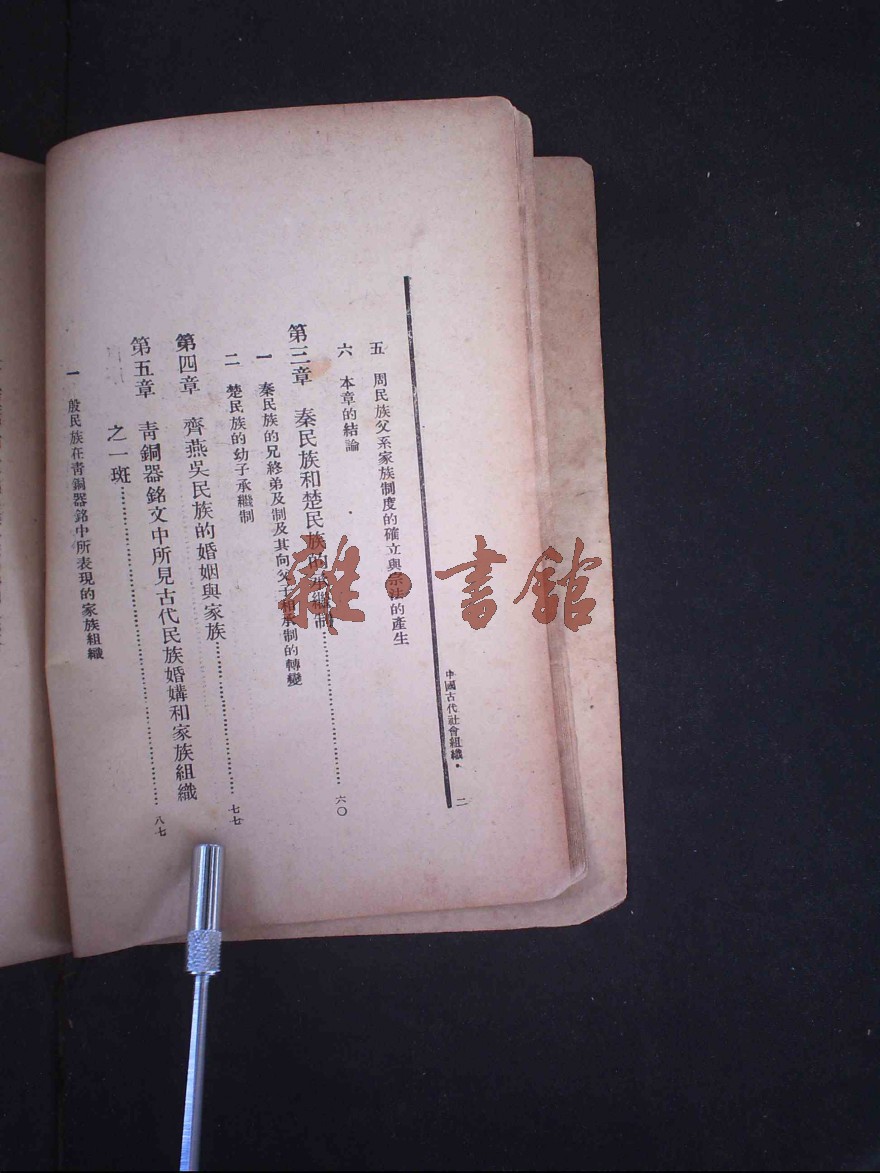 中國古代社會組織 二
五 周民族父系家族制度的確立與宗法的產生
六 本章的結論
第三章 秦民族和楚民族的承繼制……………………六〇
一 秦民族的兄終弟及制及其向父子相承制的轉變
二 楚民族的幼子承繼制
第四章 齊燕吳民族的婚姻與家族……………………七七
第五章 青銅器銘文中所見古代民族婚媾和家族組織
之一斑……………………八七
一 殷民族在青銅器銘中所表現的家族組織
雜·書館